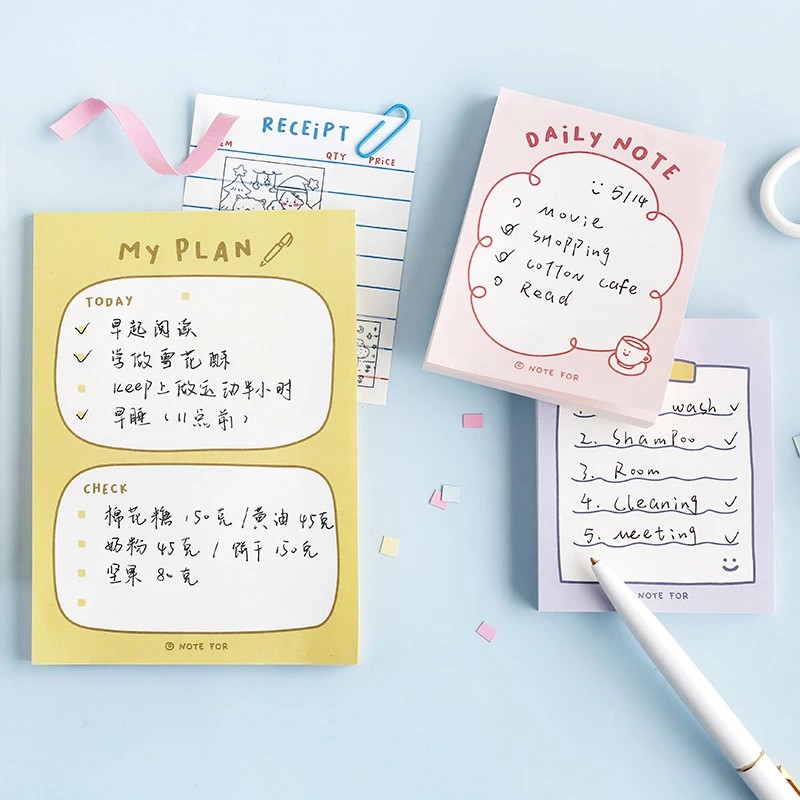 RECEiPT
QTY PRiCE
MY PLAN
TODAY
早起阅读
学做雪花酥
keep上做运动半小时
早睡（11点前）
CHECK
棉花糖 150克 /黄油 45克
奶粉 45克 / 饼干 150克
坚果 80克
© NOTE FOR
DAiLY NOTE
5/14
Movie
SHOPPing
coTTon cafe
Read
© NOTE FOR
wash
2. Shampoo
3. Room
4. cleaning
5. meeting
NOTE FOR